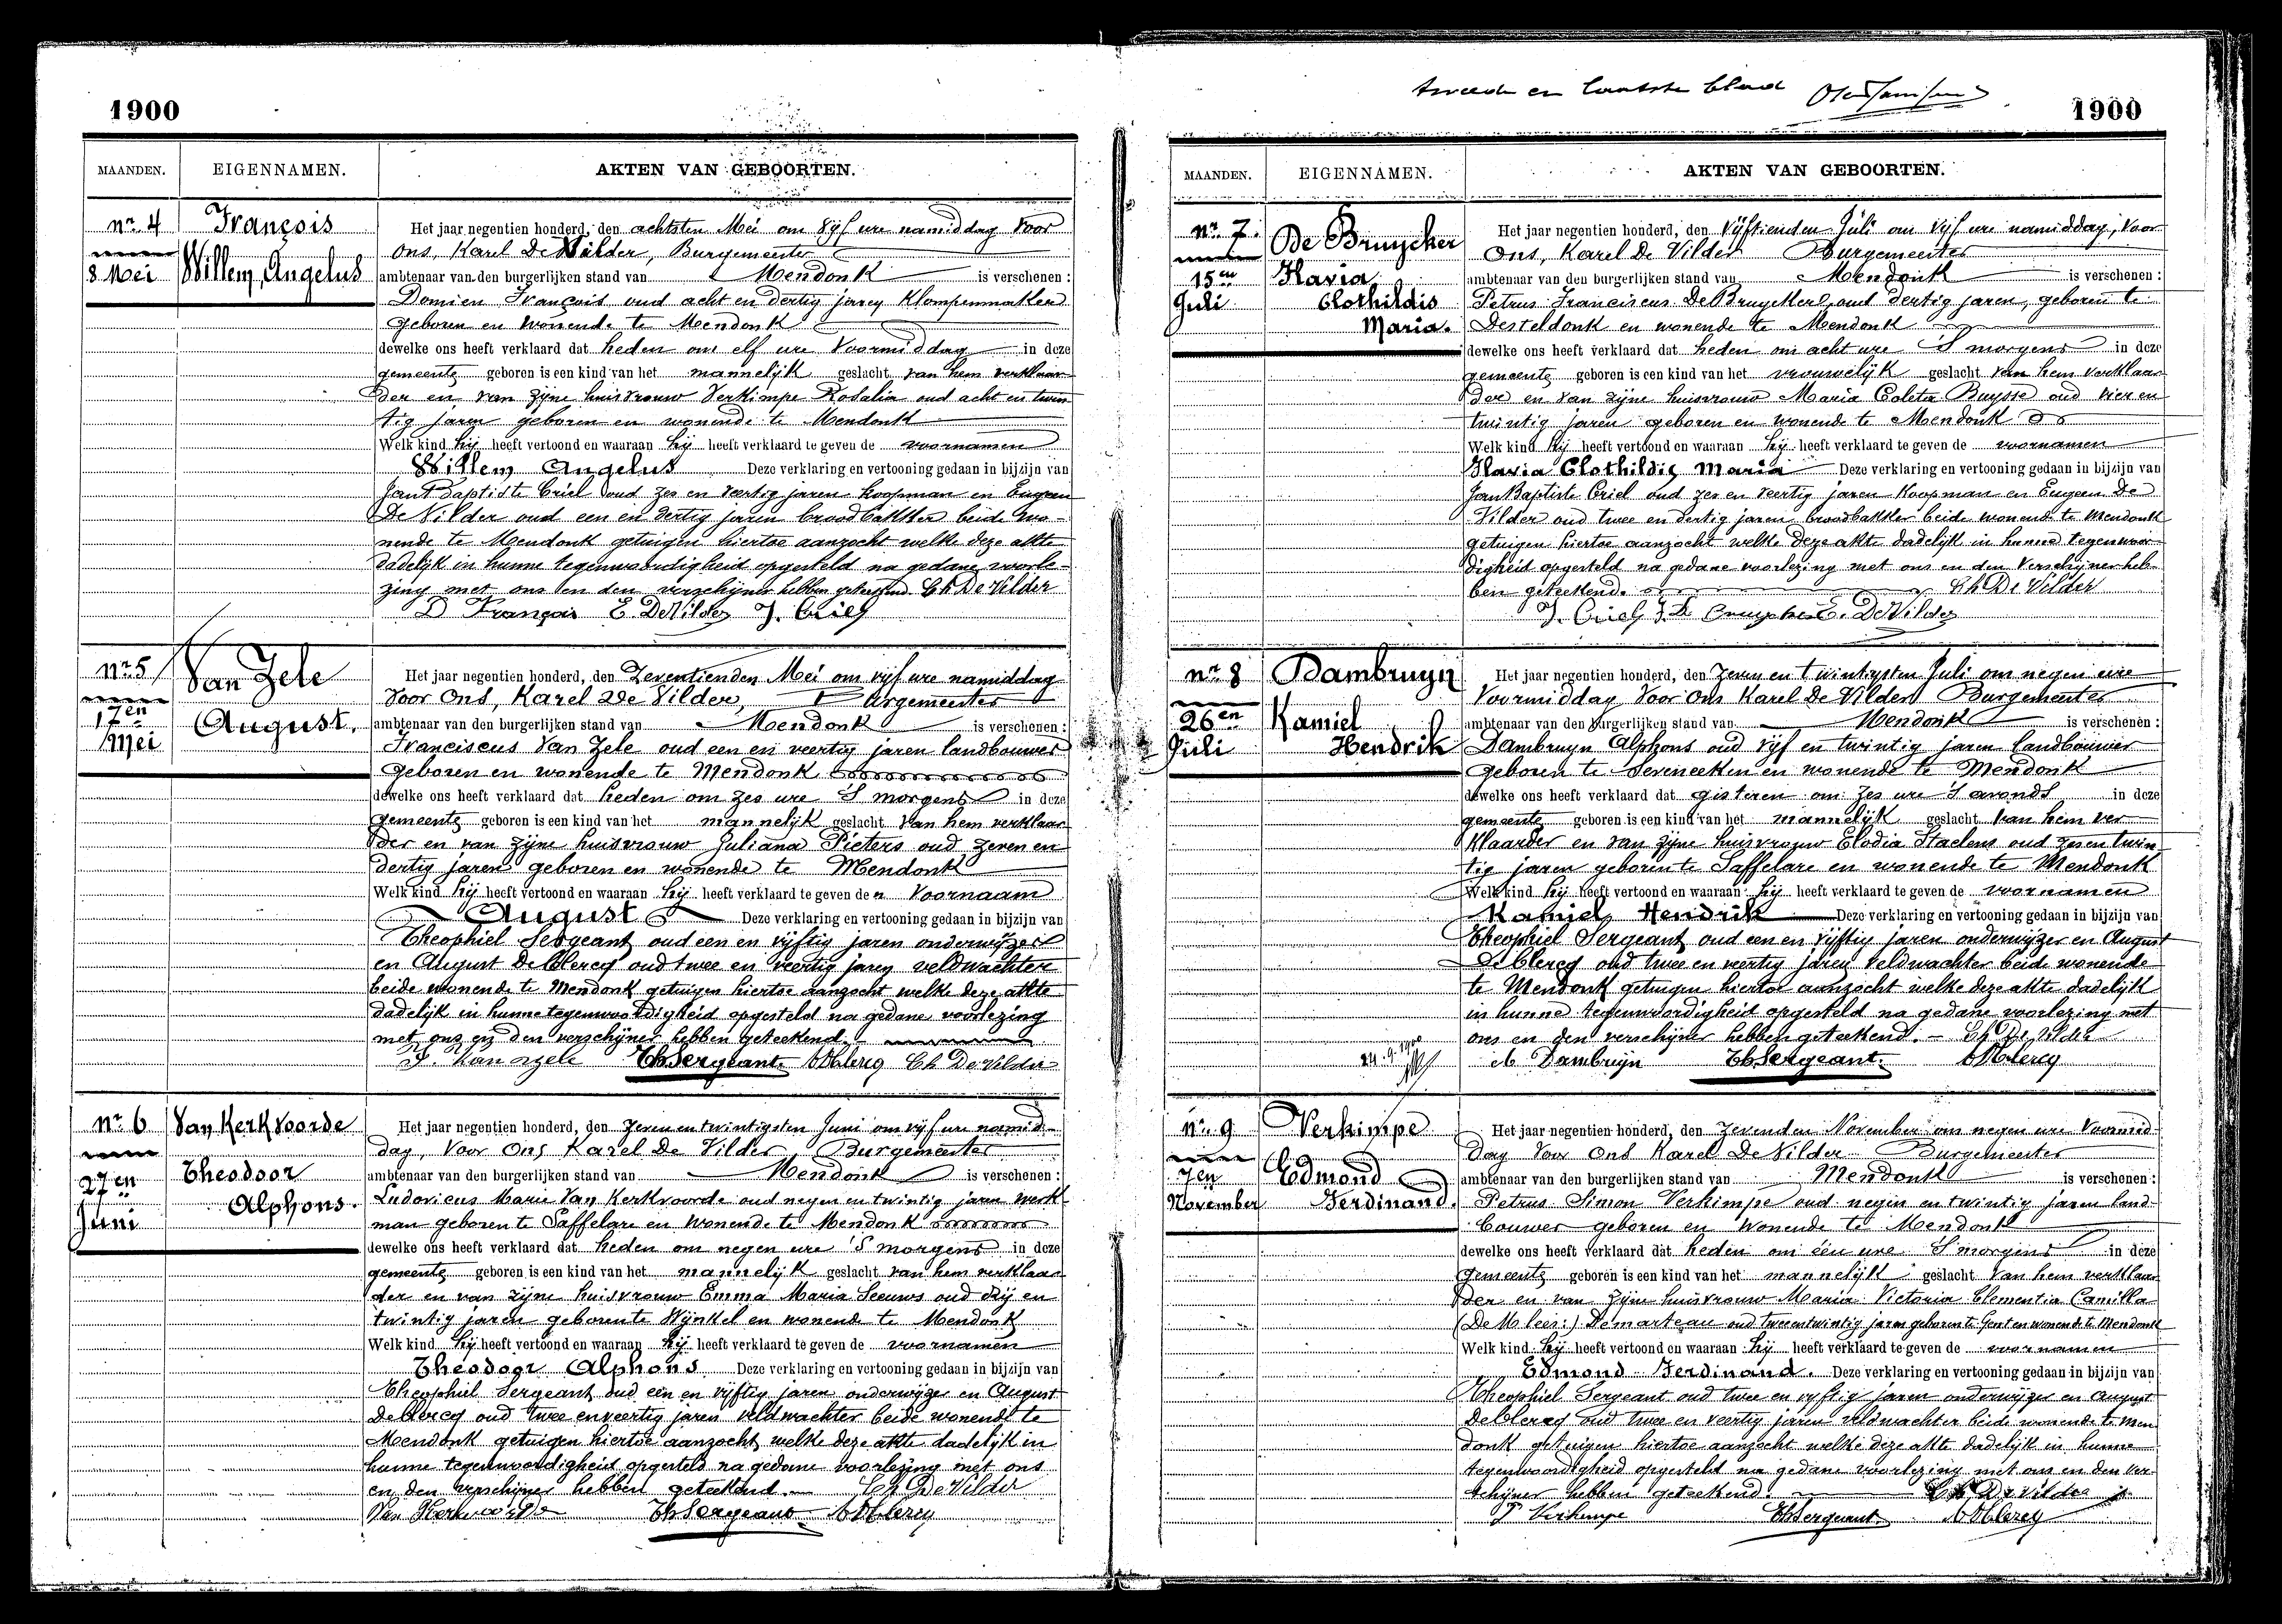 1900
MAANDEN. EIGENNAMEN. AKTEN VAN GEBOORTEN.
nr. 4
8 Mei
François
Willem, Angelus
Het jaar negentien honderd, den achtsten Mei om vijf ure namiddag Voor
Ons, Karel De Vilder, Burgemeester
ambtenaar van den burgerlijken stand van Mendonk is verschenen :
Domien François oud acht en dertig jaren Klompenmaker
geboren en wonende te Mendonk
dewelke ons heeft verklaard dat heden om elf ure Voormiddag in deze
gemeente geboren is een kind van het mannelijk geslacht van hem verklaar-
der en van zijne huisvrouw Verkimpe Rosalia oud acht en twin
tig jaren geboren en wonende te Mendonk
Welk kind hij heeft vertoond en waaraan hij heeft verklaard te geven de voornamen
Willem Angelus Deze verklaring en vertooning gedaan in bijzijn van
Jan Baptiste Criel oud zes en veertig jaren koopman en Eugeen
De Vilder oud een en dertig jaren broodbakker beide wo-
nende te Mendonk getuigen hiertoe aanzocht welke deze akte
dadelijk in hunne tegenwoordigheid opgesteld na gedane voorle-
zing met ons en den verschijner hebben geteekend. Ch De Vilder
D François E. DeVilder J. Criel
nr. 5
17en
Mei
Van Zele
August.
Het jaar negentien honderd, den Zeventienden Mei om vijf ure namiddag
Voor Ons, Karel De Vilder, Burgemeester
ambtenaar van den burgerlijken stand van Mendonk is verschenen :
Franciscus Van Zele oud een en veertig jaren landbouwer
geboren en wonende te Mendonk
dewelke ons heeft verklaard dat heden om zes ure 'S morgens in deze
gemeente geboren is een kind van het mannelijk geslacht van hem verklaar
der en van zijne huisvrouw Juliana Pieters oud zeven en
dertig jaren geboren en wonende te Mendonk
Welk kind hij heeft vertoond en waaraan hij heeft verklaard te geven den Voornaam
August Deze verklaring en vertooning gedaan in bijzijn van
Theophiel Sergeant oud een en vijftig jaren onderwijzer
en August De Clercq oud twee en veertig jaren veldwachter
beide wonende te Mendonk getuigen hiertoe aanzocht welke deze akte
dadelijk in hunne tegenwoordigheid opgesteld na gedane voorlezing
met ons en den verschijner hebben geteekend.
F. Van Zele ThSergeant. ADClercq Ch De Vilder
nr. 6
27en
Juni
Van Kerkvoorde
Theodoor
Alphons.
Het jaar negentien honderd, den Zeven en twintigsten Juni om vijf ure namid-
dag, Voor Ons Karel De Vilder, Burgemeester
ambtenaar van den burgerlijken stand van Mendonk is verschenen :
Ludovicus Marie Van Kerkvoorde oud negen en twintig jaren werk
man geboren te Saffelare en wonende te Mendonk
dewelke ons heeft verklaard dat heden om negen ure 'S morgens in deze
gemeente geboren is een kind van het mannelijk geslacht van hem verklaar
der en van zijne huisvrouw Emma Maria Seeuws oud drij en
twintig jaren geboren te Wijnkel en wonende te Mendonk
Welk kind hij heeft vertoond en waaraan hij heeft verklaard te geven de voornamen
Theodoor Alphons Deze verklaring en vertooning gedaan in bijzijn van
Theophiel Sergeant oud een en vijftig jaren onderwijzer en August
DeClercq oud twee en veertig jaren veldwachter beide wonende te
Mendonk getuigen hiertoe aanzocht welke deze akte dadelijk in
hunne tegenwoordigheid opgesteld na gedane voorlezing met ons
en den verschijner hebben geteekend. Ch De Vilder
Van Kerkvoorde ThSergeant ADClercq
tweede en laatste blad
1900
MAANDEN. EIGENNAMEN. AKTEN VAN GEBOORTEN.
nr. 7.
15en
Juli
De Bruycker
Flavia
Clothildis
Maria.
Het jaar negentien honderd, den Vijftienden Juli om vijf ure namiddag, Voor
Ons, Karel De Vilder Burgemeester
ambtenaar van den burgerlijken stand van Mendonk is verschenen :
Petrus Franciscus De Bruycker oud dertig jaren, geboren te
Desteldonk en wonende te Mendonk
dewelke ons heeft verklaard dat heden om acht ure 'S morgens in deze
gemeente geboren is een kind van het vrouwelijk geslacht van hem verklaar
der en van zijne huisvrouw Maria Coleta Buysse oud vier en
twintig jaren geboren en wonende te Mendonk
Welk kind hij heeft vertoond en waaraan hij heeft verklaard te geven de voornamen
Flavia Clothildis Maria Deze verklaring en vertooning gedaan in bijzijn van
Jan Baptiste Criel oud zes en veertig jaren Koopman en Eugeen De
Vilder oud twee en dertig jaren broodbakker beide wonende te Mendonk
getuigen hiertoe aanzocht welke deze akte dadelijk in hunne tegenwoor-
digheid opgesteld na gedane voorlezing met ons en den Verschijner heb-
ben geteekend. Ch De Vilder
J. Criel De Bruycker E. DeVilder
nr. 8
26en
Juli
Dambruyn
Kamiel
Hendrik
Het jaar negentien honderd, den Zeven en twintigsten Juli om negen ure
Voormiddag Voor Ons Karel De Vilder Burgemeester
ambtenaar van den burgerlijken stand van Mendonk is verschenen :
Dambruyn Alphons oud vijf en twintig jaren landbouwer
geboren te Seveneeken en wonende te Mendonk
dewelke ons heeft verklaard dat gisteren om zes ure 'S avonds in deze
gemeente geboren is een kind van het mannelijk geslacht van hem ver-
klaarder en van zijne huisvrouw Elodia Staelens oud zes en twin
tig jaren geboren te Saffelare en wonende te Mendonk
Welk kind hij heeft vertoond en waaraan hij heeft verklaard te geven de voornamen
Kamiel Hendrik Deze verklaring en vertooning gedaan in bijzijn van
Theophiel Sergeant oud een en vijftig jaren onderwijzer en August
De Clercq oud twee en veertig jaren veldwachter beide wonende
te Mendonk getuigen hiertoe aanzocht welke deze akte dadelijk
in hunne tegenwoordigheid opgesteld na gedane voorlezing met
ons en den verschijner hebben geteekend. — Ch De Vilder
24.9.1900
A Dambruyn ThSergeant. ADClercq
nr. 9
7en
November
Verkimpe
Edmond
Ferdinand.
Het jaar negentien honderd, den zevenden November om negen ure Voormid-
dag Voor Ons Karel De Vilder Burgemeester
ambtenaar van den burgerlijken stand van Mendonk is verschenen :
Petrus Simon Verkimpe oud negen en twintig jaren land-
bouwer geboren en wonende te Mendonk
dewelke ons heeft verklaard dat heden om één ure 'S morgens in deze
gemeente geboren is een kind van het mannelijk geslacht van hem verklaar
der en van zijne huisvrouw Maria Victoria Clementia Camilla
Demarteau oud twee en twintig jaren geboren te Gent en wonende te Mendonk
Welk kind hij heeft vertoond en waaraan hij heeft verklaard te geven de voornamen
Edmond Ferdinand. Deze verklaring en vertooning gedaan in bijzijn van
Theophiel Sergeant oud twee en vijftig jaren onderwijzer en August
DeClercq oud twee en veertig jaren veldwachter beide wonende te Men
donk getuigen hiertoe aanzocht welke deze akte dadelijk in hunne
tegenwoordigheid opgesteld na gedane voorlezing met ons en den ver-
schijner hebben geteekend. Ch De Vilder
P Verkimpe ThSergeant ADClercq